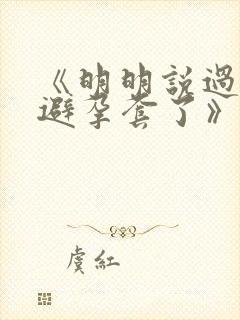 《明明説過
避孕套了》
虞紅